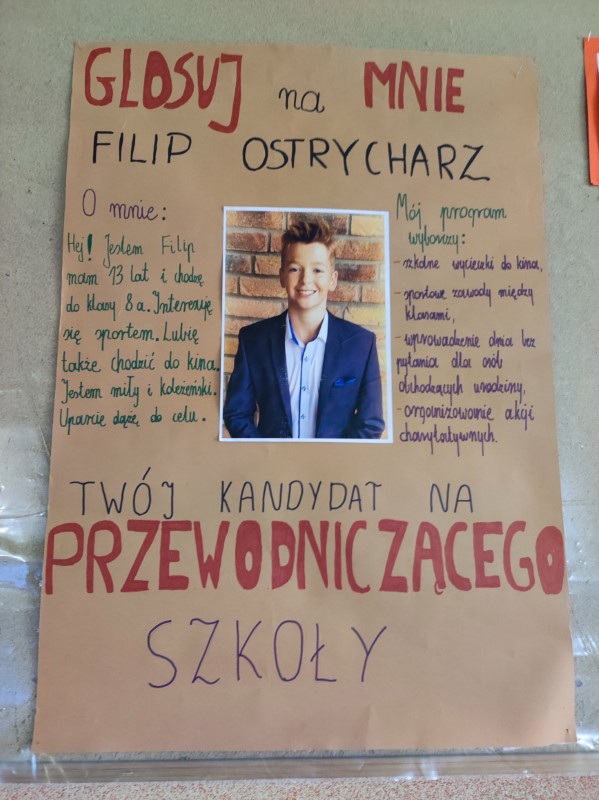 GLOSUJ na MNIE
FILIP OSTRYCHARZ
O mnie:
Hej! Jestem Filip
mam 13 lat i chodzę
do klasy 8a. Interesuję
się sportem. Lubię
także chodzić do kina.
Jestem miły i koleżeński.
Uparcie dążę do celu.
Mój program
wyborczy:
- szkolne wycieczki do kina,
- sportowe zawody między
klasami,
- wprowadzenie dnia bez
pytania dla osób
obchodzących urodziny,
- organizowanie akcji
charytatywnych.
TWÓJ KANDYDAT NA
PRZEWODNICZĄCEGO
SZKOŁY